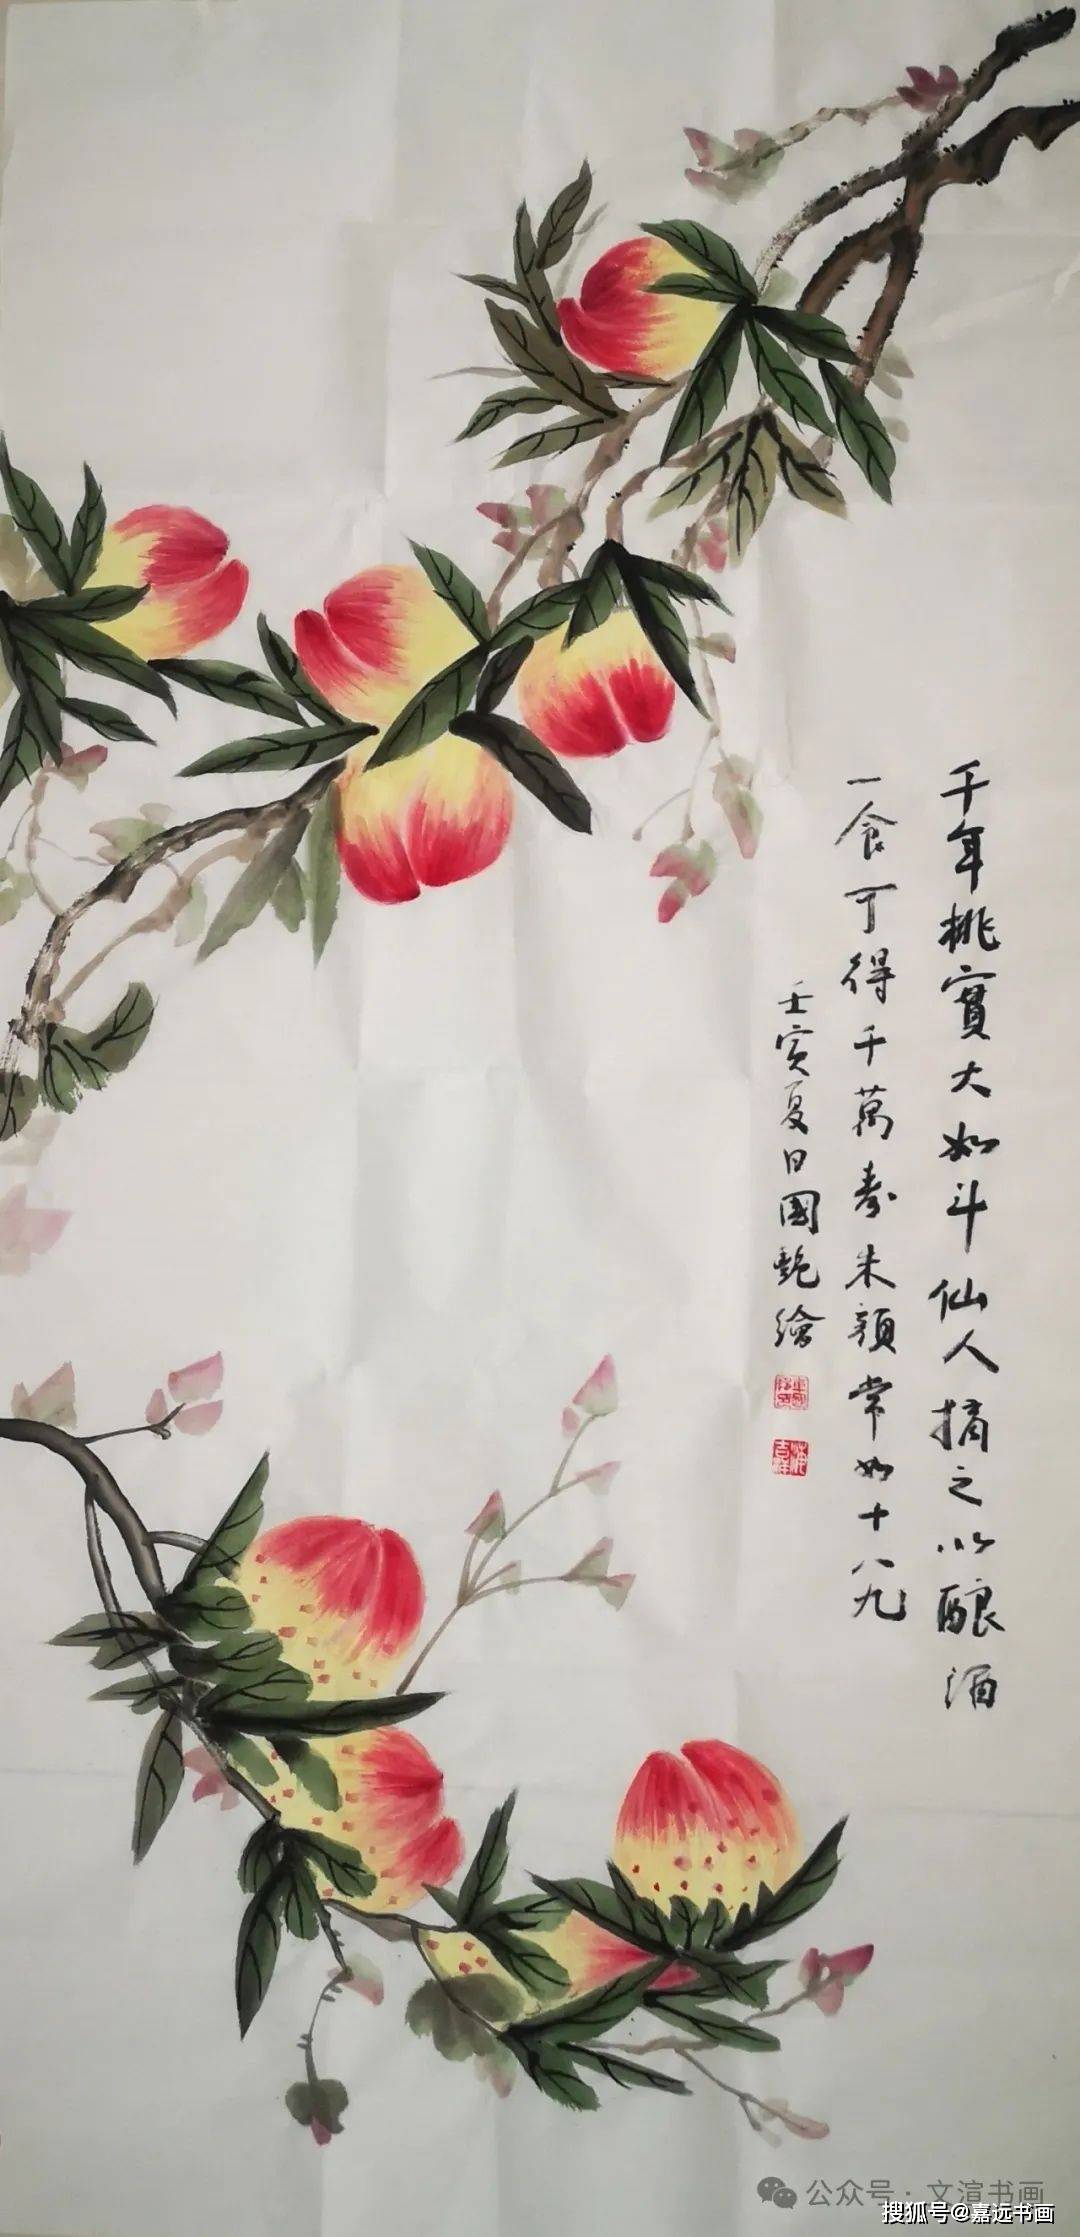 千年桃實大如斗仙人摘之以釀酒
一食可得千萬壽朱顏常如十八九
壬寅夏日國艷繪
吉祥
公众号·文渲书画
搜狐号@嘉远书画